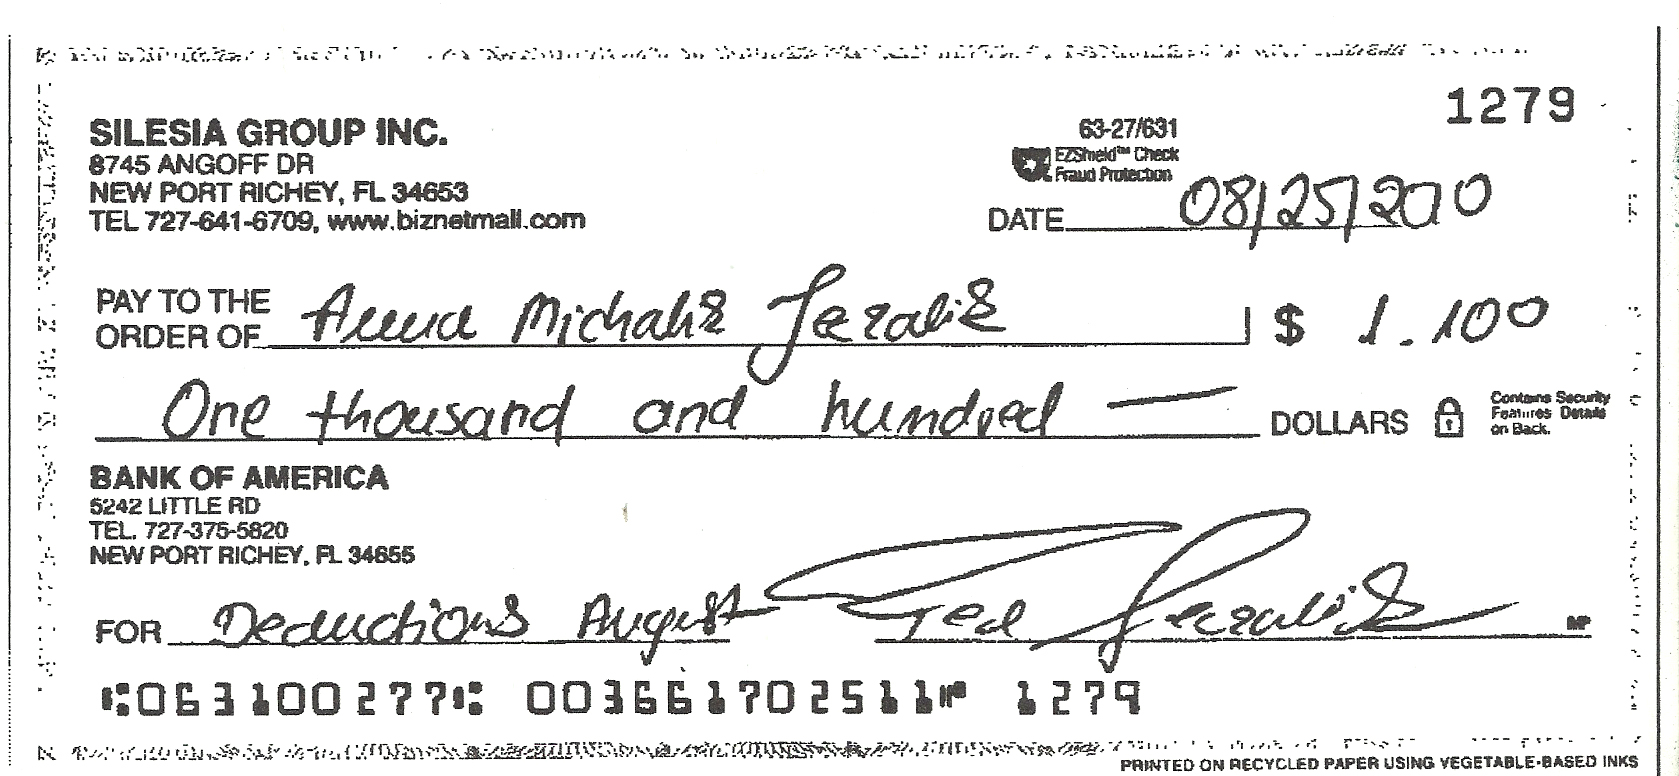 1279
SILESIA GROUP INC.
8745 ANGOFF DR
NEW PORT RICHEY, FL 34653
TEL 727-641-6709, www.biznetmall.com
63-27/631
EZShield™ Check
Fraud Protection
DATE 08/25/2010
PAY TO THE
ORDER OF Anna Michalik Jezalik $ 1.100
One thousand and hundred — DOLLARS
Contains Security
Features Details
on Back.
BANK OF AMERICA
5242 LITTLE RD
TEL. 727-375-5820
NEW PORT RICHEY, FL 34655
FOR Deductions August Ted Jezalik MP
⑆063100277⑆ 003661702511⑈ 1279
PRINTED ON RECYCLED PAPER USING VEGETABLE-BASED INKS